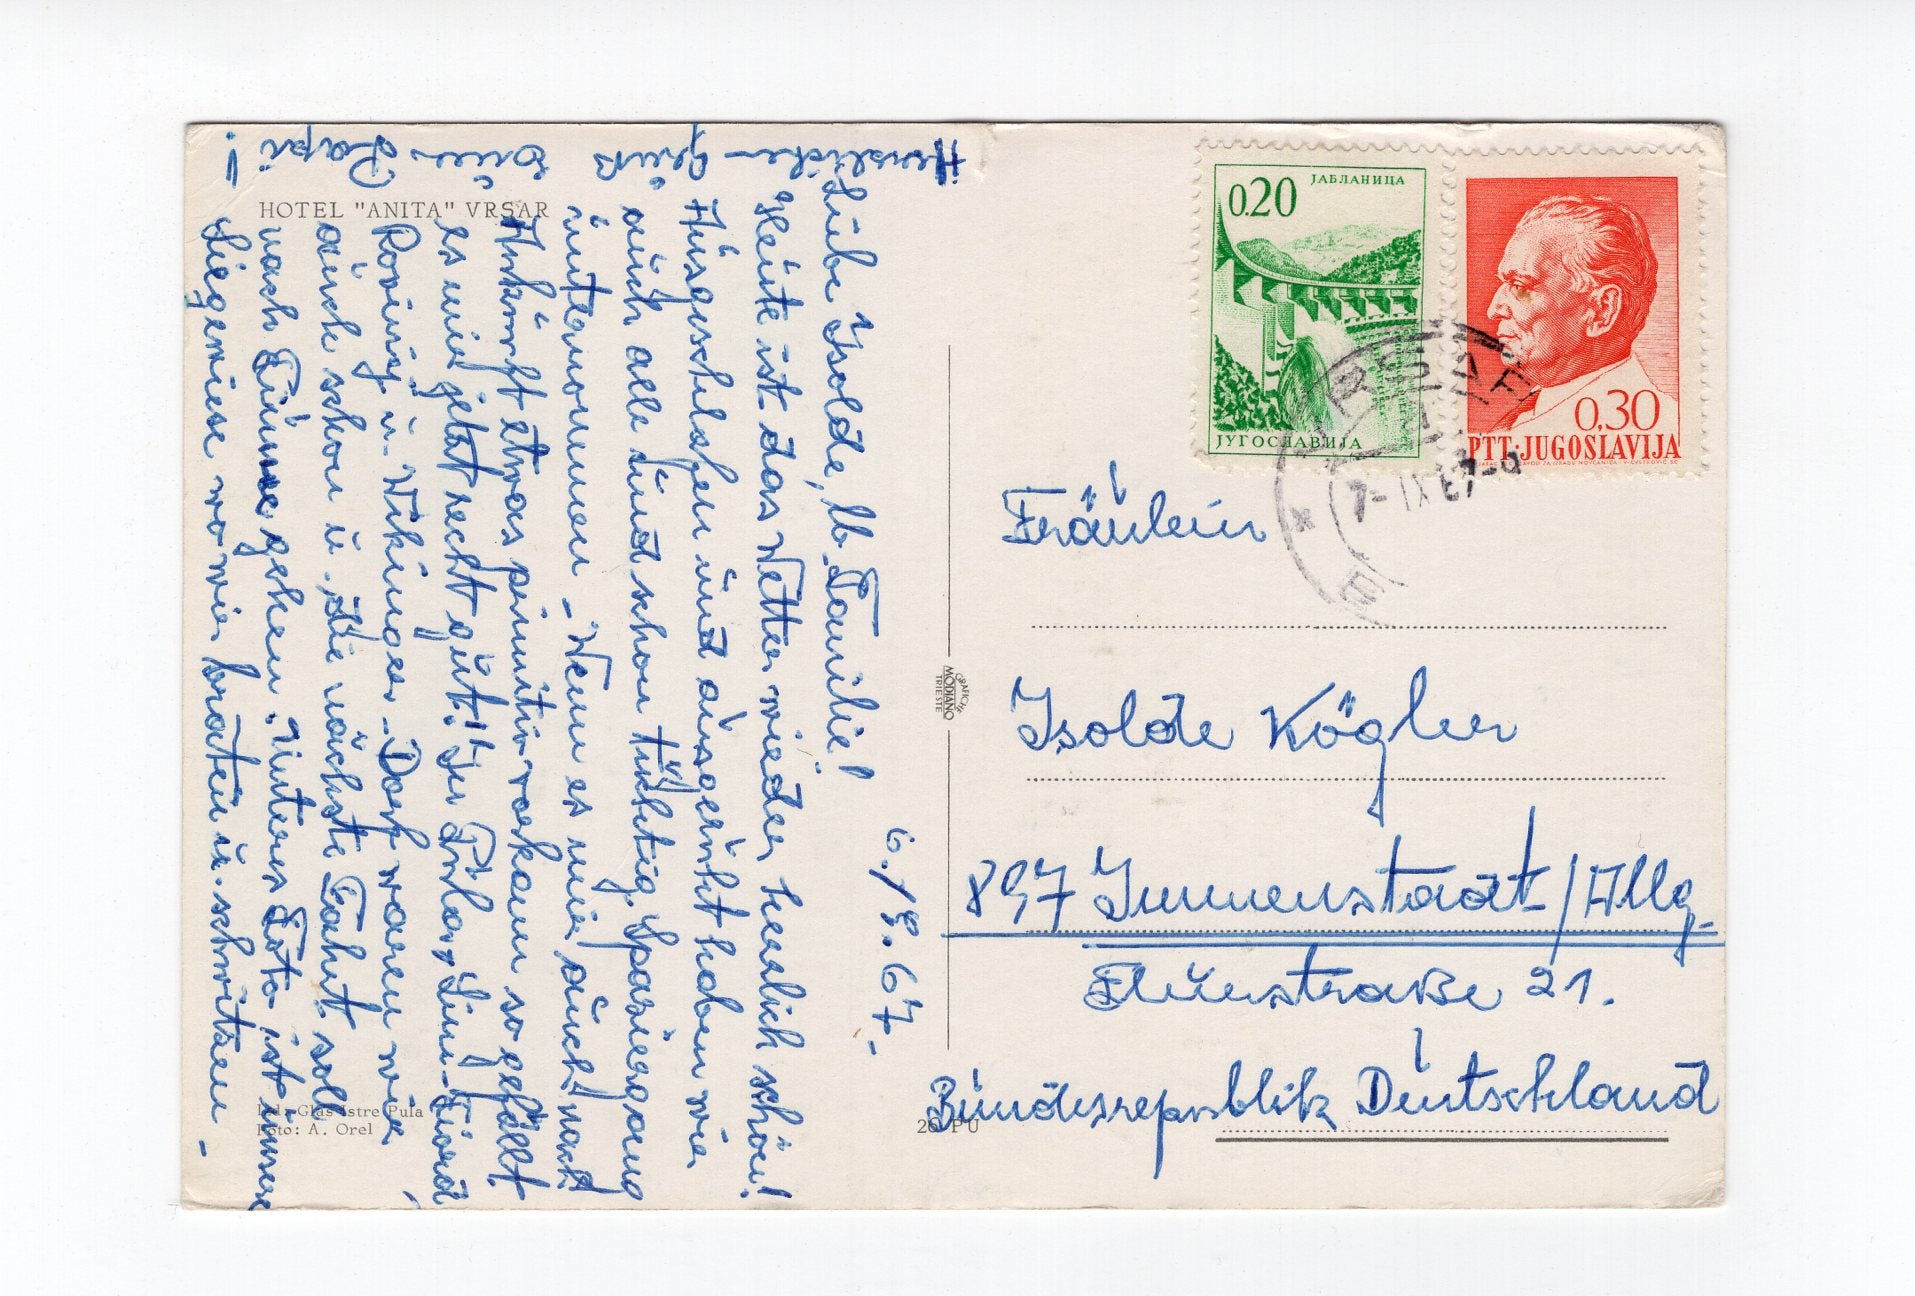 HOTEL "ANITA" VRSAR
6./9.67.-
Liebe Isolde, lb. Familie!
Heute ist das Wetter wieder herrlich schön!
Ausgeschlafen und ausgeruht haben wir
auch alle und schon tüchtig Spaziergang
unternommen - Wenn es mir auch nach
Ankunft etwas primitiv vorkam so gefällt
es mir jetzt recht gut.
Rovinj u. Wikinger-Dorf waren wir
auch schon u. die nächste Fahrt soll
nach gehen. ist unsere
Liegewiese wo wir braten u. schwitzen -
Herzlichen
Gruß
Euer
Papi
Izd.: Glas Istre Pula
Foto: A. Orel
GRAFICHE
MODIANO
TRIESTE
20 PU
0.20
ЈАБЛАНИЦА
ЈУГОСЛАВИЈА
0,30
PTT·JUGOSLAVIJA
VRSAR
7-IX 67-9
Fräulein
Isolde Kögler
897 Immenstadt/Allg.
Flurstraße 21.
Bundesrepublik Deutschland